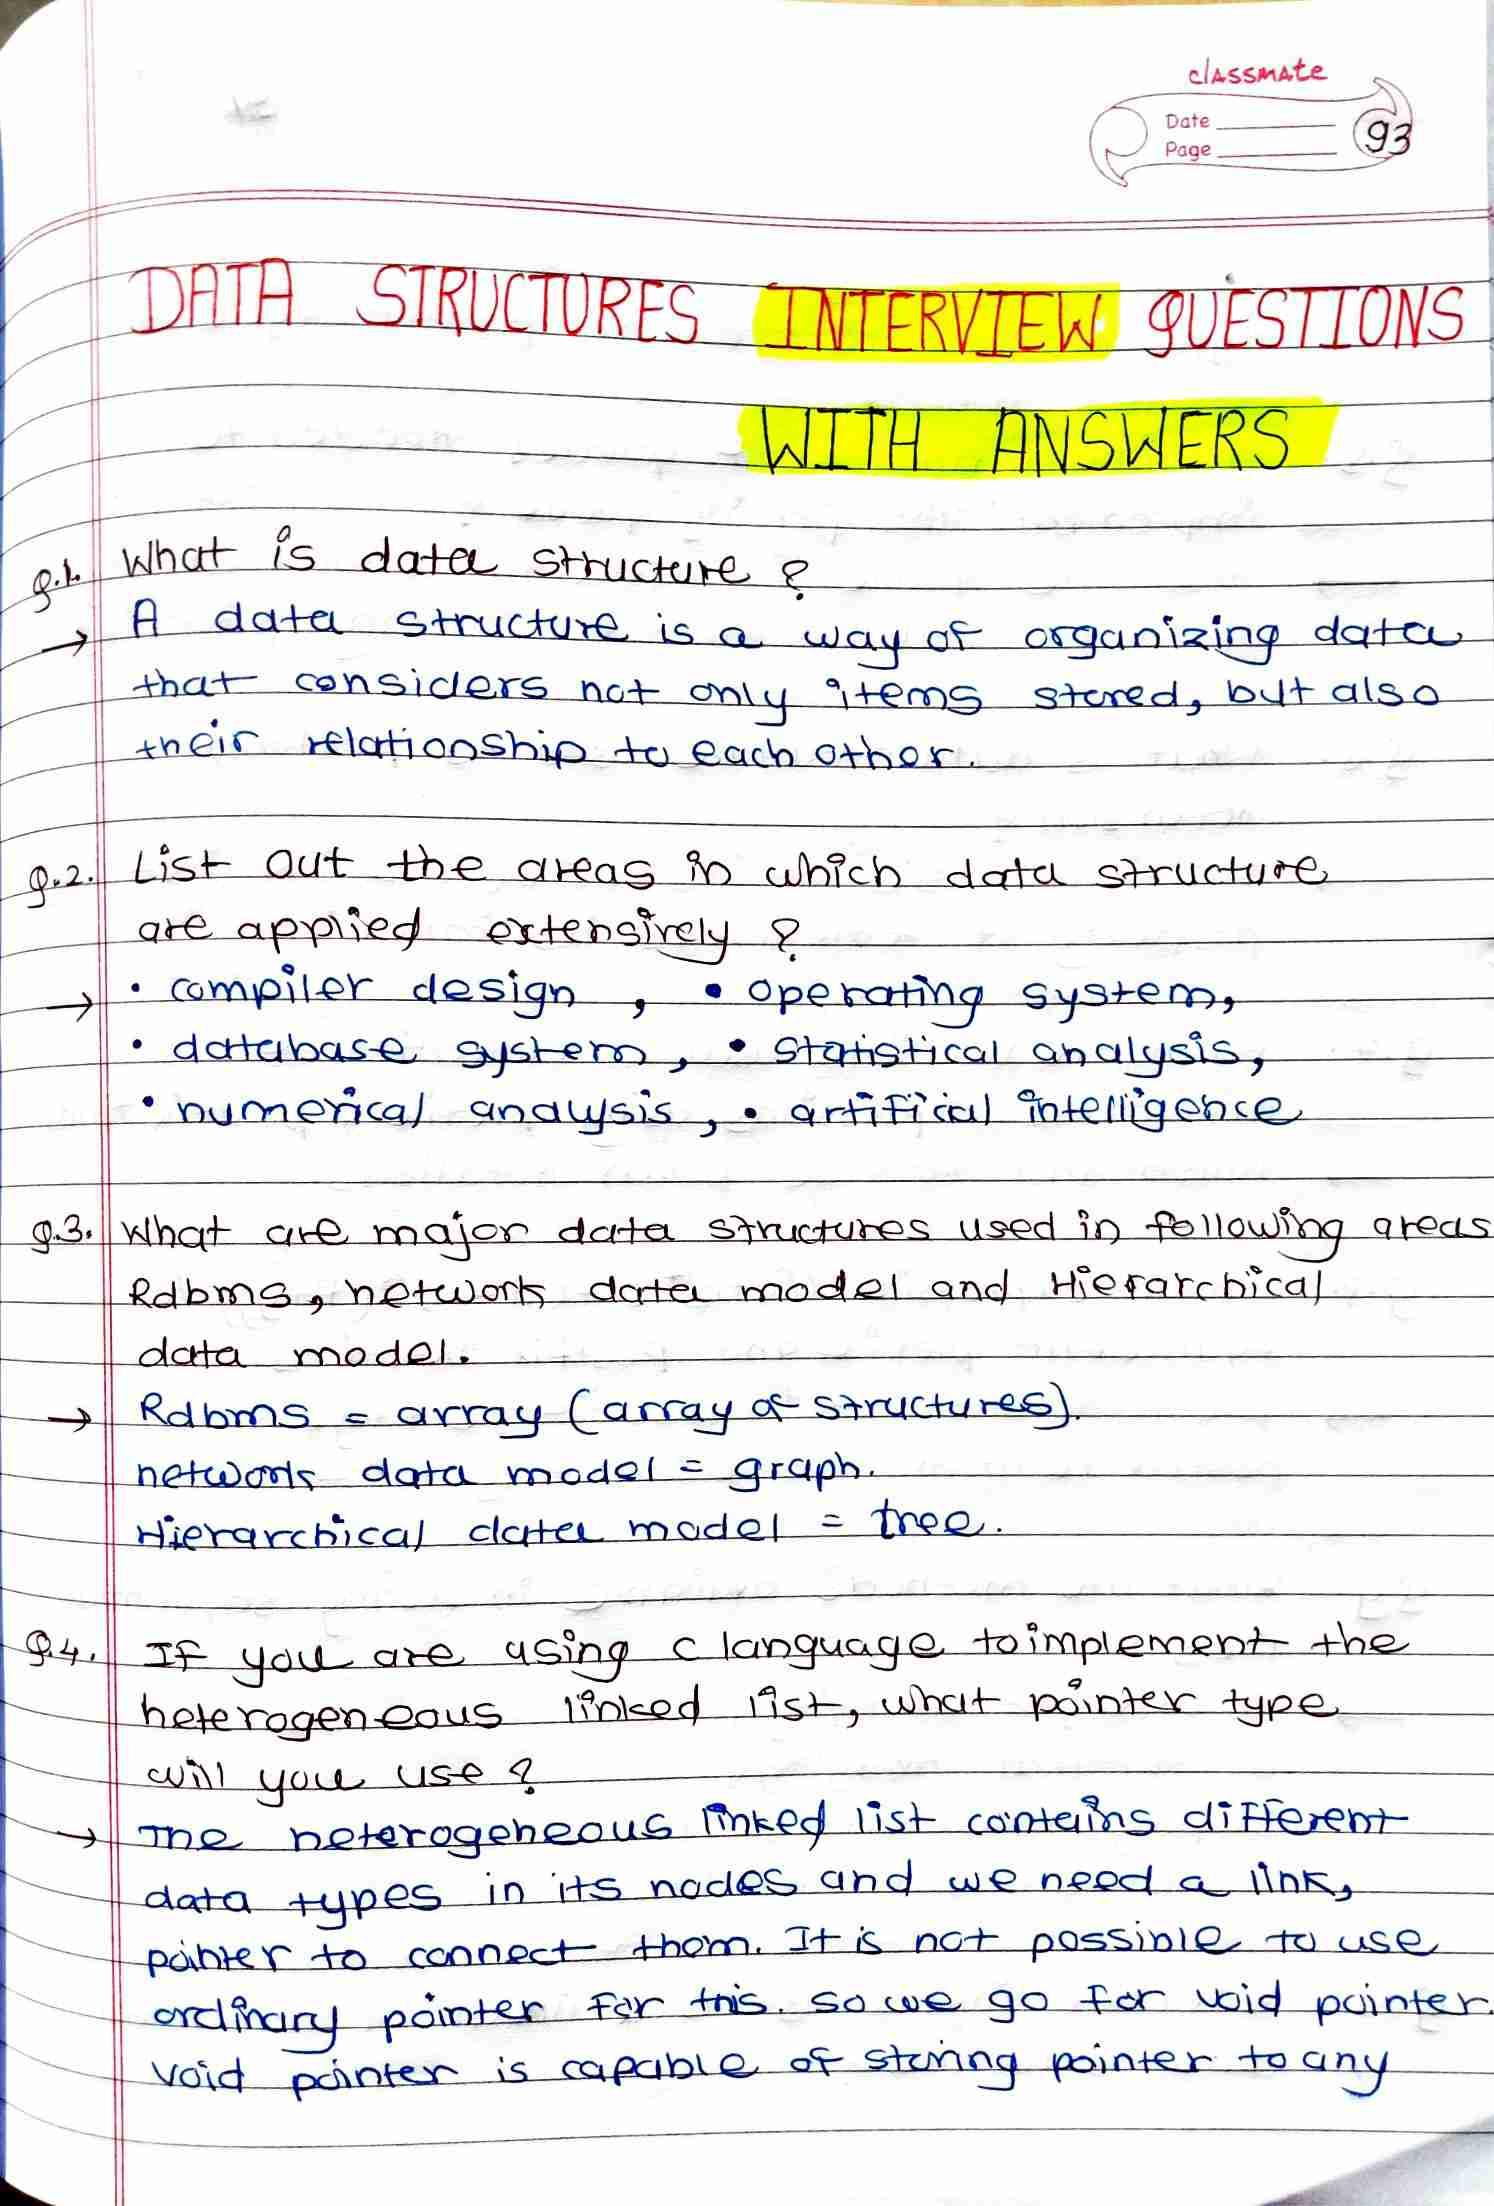 classmate
Date
Page
93
DATA STRUCTURES INTERVIEW QUESTIONS
WITH ANSWERS
Q.1. What is data structure ?
→ A data structure is a way of organizing data
that considers not only items stored, but also
their relationship to each other.
Q.2. List out the areas in which data structure
are applied extensively ?
→ • compiler design , • operating system,
• database system, • statistical analysis,
• numerical analysis, • artificial intelligence
Q.3. What are major data structures used in following areas
Rdbms, network data model and Hierarchical
data model.
→ Rdbms = array (array of structures).
network data model = graph.
Hierarchical data model = tree.
Q.4. If you are using c language to implement the
heterogeneous linked list, what pointer type
will you use ?
→ The heterogeneous linked list contains different
data types in its nodes and we need a link,
pointer to connect them. It is not possible to use
ordinary pointer for this. so we go for void pointer.
void pointer is capable of storing pointer to any